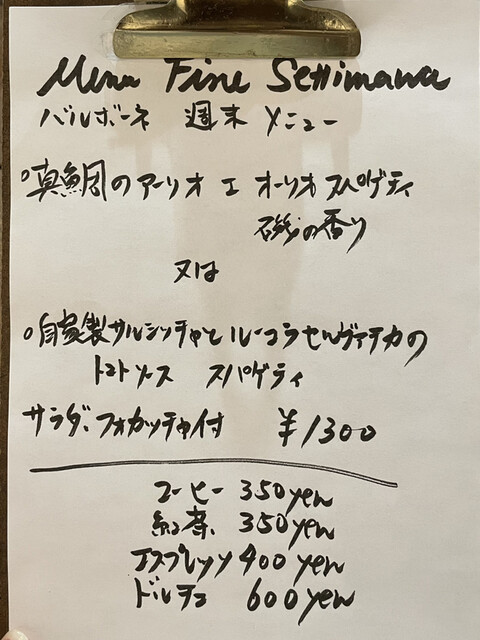 Menu Fine Settimana
バルボーネ 週末 メニュー
○真鯛のアーリオ エ オーリオ スパゲティ
磯の香り
又は
○自家製サルシッチャと ルーコラセルヴァチカの
トマトソース スパゲティ
サラダ、フォカッチャ付 ¥1300
コーヒー 350yen
紅茶 350yen
エスプレッソ 400yen
ドルチェ 600yen